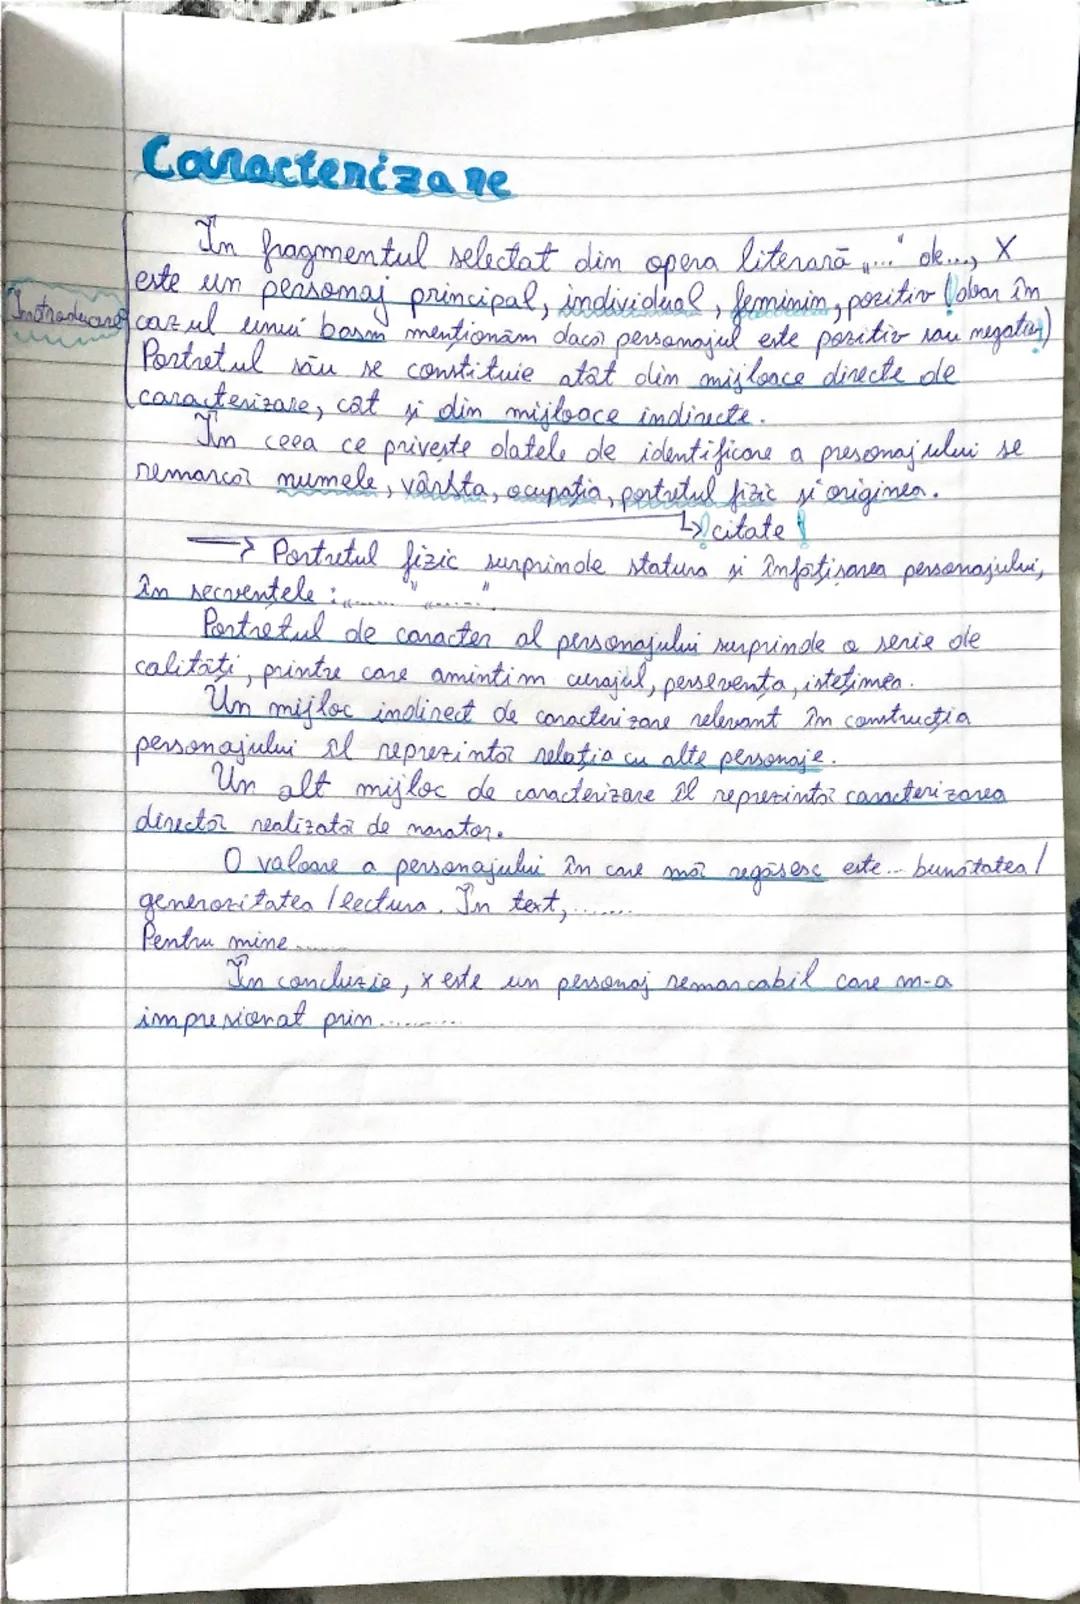 Caracterizare
În fragmentul selectat din opera literară „..." de..., X
este un personaj principal, individual, feminin, pozitiv (doar în
Introducere
cazul unui basm menționăm dacă personajul este pozitiv sau negativ)
Portretul său se constituie atât din mijloace directe de
caracterizare, cât și din mijloace indirecte.
În ceea ce privește datele de identificare a presonajului se
remarcă numele, vârsta, ocupația, portretul fizic și originea.
↳ citate!
→ Portretul fizic surprinde statura și înfățișarea personajului,
în secventele: „......" „......".
Portretul de caracter al personajului surprinde o serie de
calități, printre care amintim curajul, perseverența, istețimea.
Un mijloc indirect de caracterizare relevant în construcția
personajului îl reprezintă relația cu alte personaje.
Un alt mijloc de caracterizare îl reprezintă caracterizarea
directă realizată de narator.
O valoare a personajului în care mă regăsesc este... bunătatea/
generozitatea/lectura. În text,.......
Pentru mine.......
În concluzie, x este un personaj remarcabil care m-a
impresionat prin..........